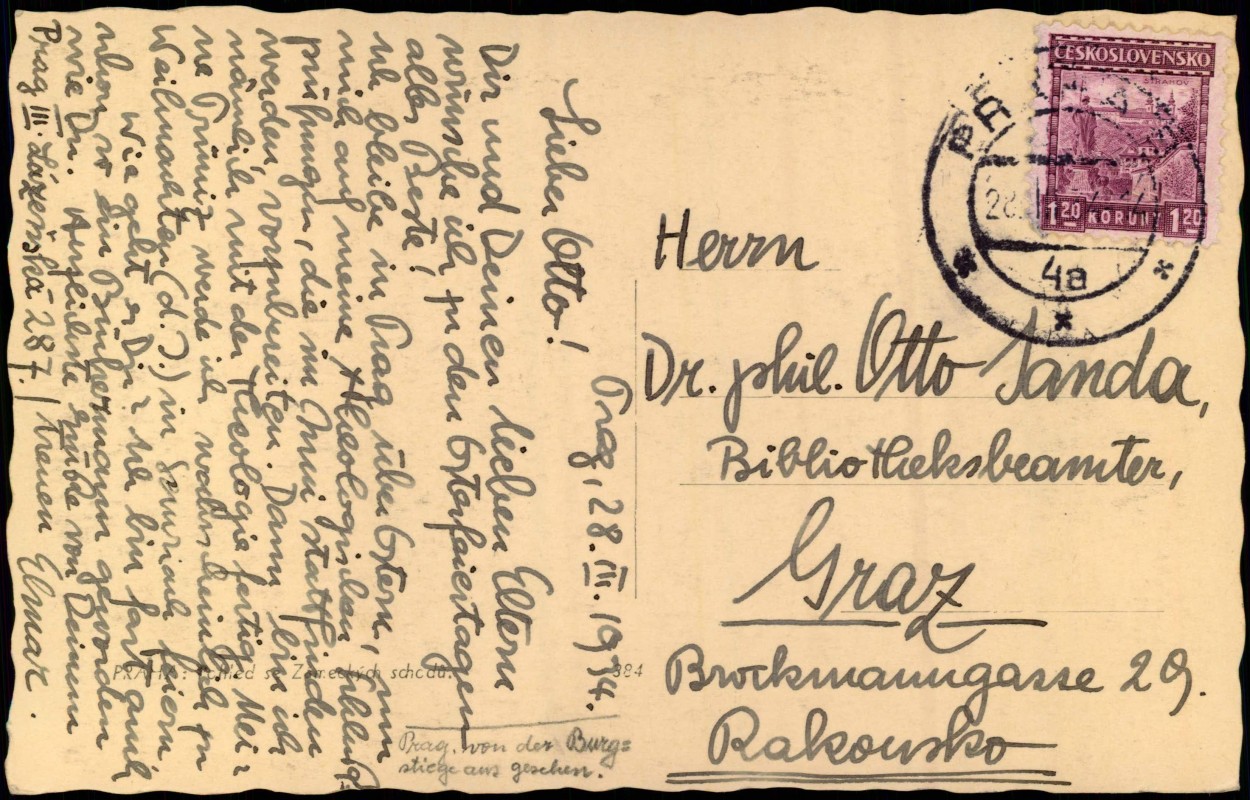 Prag, 28. III. 1934.
Lieber Otto!
Dir und Deinen lieben Eltern
wünsche ich zu den Osterfeiertagen
alles Beste!
Ich bleibe in Prag über Ostern, um
mich auf meine theologischen Schluß-
prüfungen, die im Juni stattfinden
werden, vorzubereiten. Dann bin ich
nämlich mit der Theologie fertig. Mei-
ne Primiz werde ich wahrscheinlich zu
Weihnachten (d. J.) in feiern
Wie geht es Dir? Ich bin fast auch
schon so ein Bücherwurm geworden
wie Du. Herzlichste Grüße von Deinem
Prag III. Lázeňská 287./ treuen Elmar.
PRAHA: Pohled se Zámeckých schodů.
384
Prag, von der Burg=
stiege aus gesehen.
ČESKOSLOVENSKO
STRAHOV
1 20 KORUN 1 20
PRAHA
28.
4a
Herrn
Dr. phil. Otto Janda,
Bibliotheksbeamter,
Graz
Brockmanngasse 29.
Rakousko